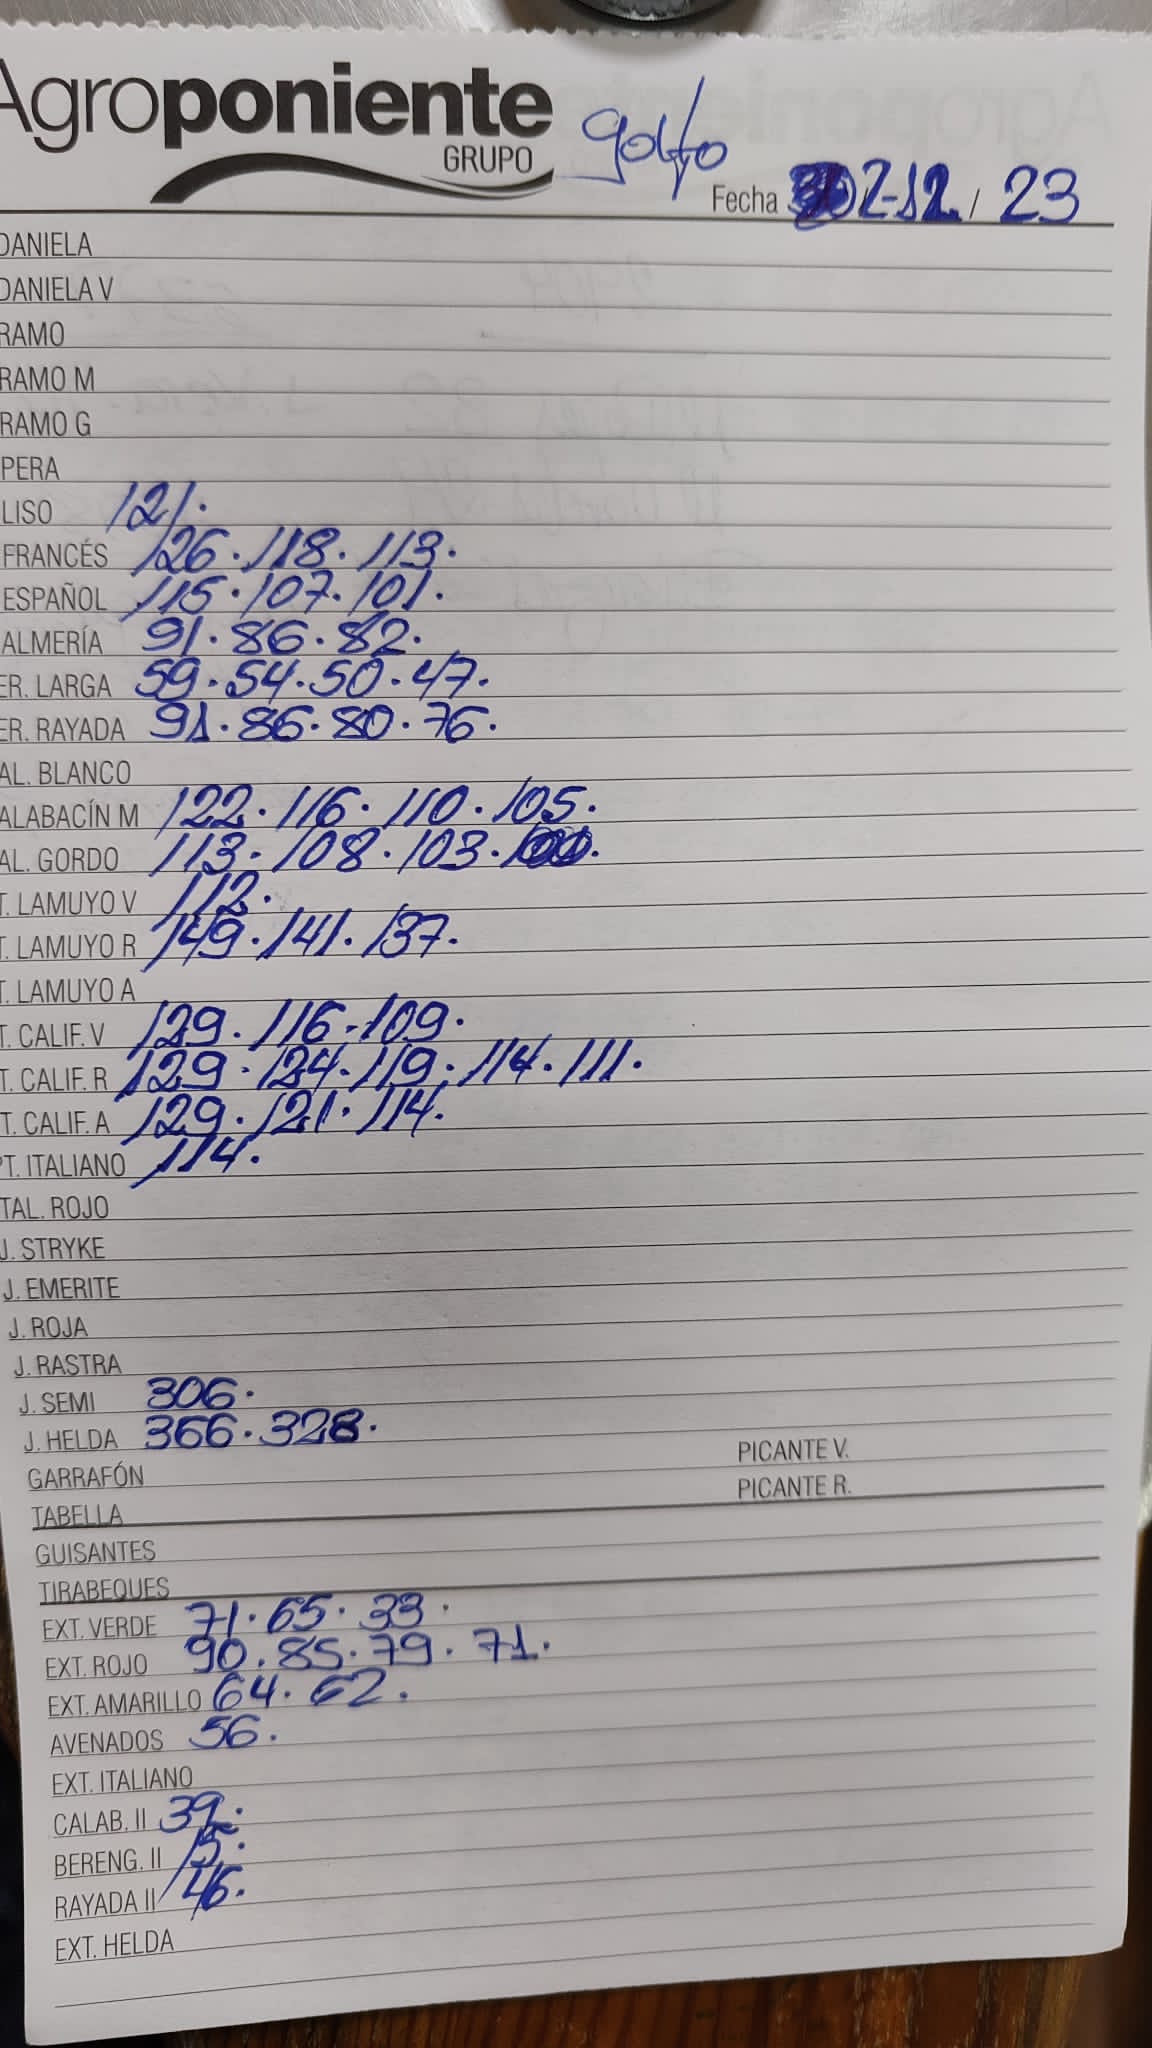 Agroponiente
GRUPO
golfo
Fecha 2-12 / 23
DANIELA
DANIELA V
RAMO
RAMO M
RAMO G
PERA
LISO 121.
FRANCÉS 126. 118. 113.
ESPAÑOL 115. 107. 101.
ALMERÍA 91. 86. 82.
ER. LARGA 59. 54. 50. 47.
ER. RAYADA 91. 86. 80. 76.
AL. BLANCO
ALABACÍN M 122. 116. 110. 105.
AL. GORDO 113. 108. 103.
T. LAMUYO V 112.
T. LAMUYO R 149. 141. 137.
T. LAMUYO A
T. CALIF. V 129. 116. 109.
T. CALIF. R 129. 124. 119. 114. 111.
T. CALIF. A 129. 121. 114.
PT. ITALIANO 114.
TAL. ROJO
J. STRYKE
J. EMERITE
J. ROJA
J. RASTRA
J. SEMI 306.
J. HELDA 366. 328.
GARRAFÓN PICANTE V.
TABELLA PICANTE R.
GUISANTES
TIRABEQUES
EXT. VERDE 71. 65. 33.
EXT. ROJO 90. 85. 79. 71.
EXT. AMARILLO 64. 62.
AVENADOS 56.
EXT. ITALIANO
CALAB. II 39.
BERENG. II 15.
RAYADA II 46.
EXT. HELDA